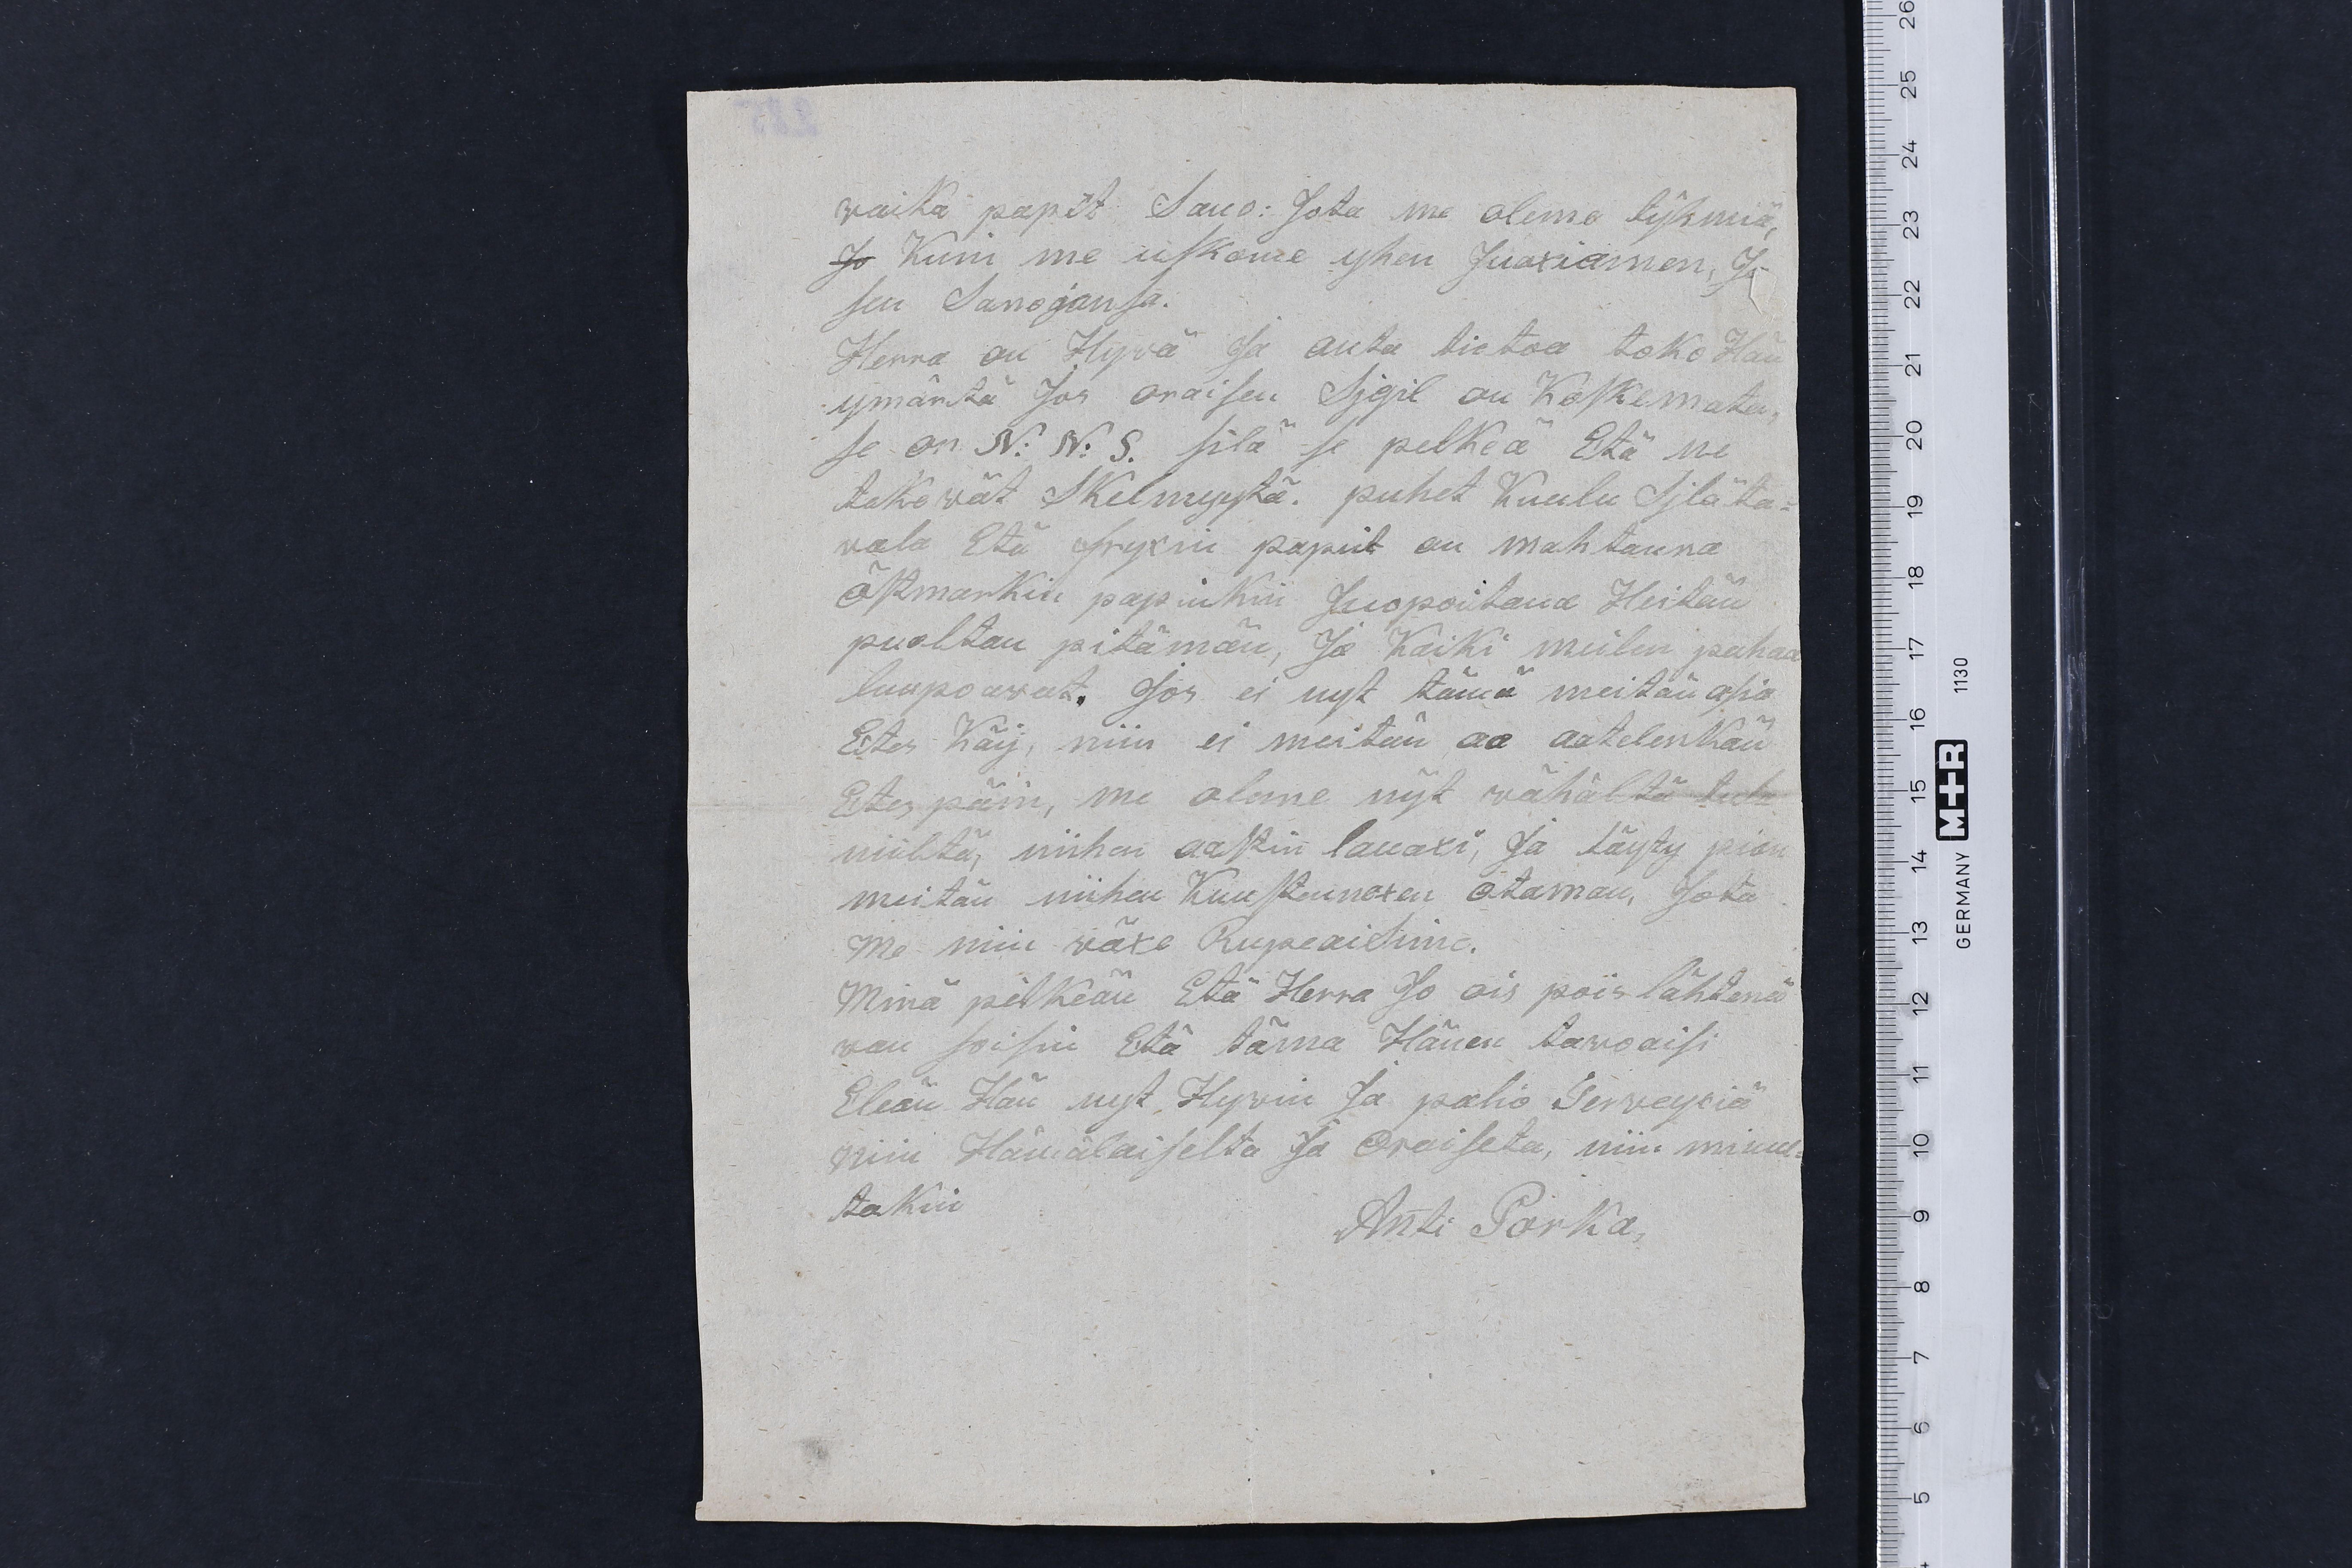 waika papit Sano: Jota me olema tyhmiä,
Jo Kuin me uskome yhen Juoxiamen, Ja
sen Sanojansa.
Herra on Hyvä Ja anta tietoa toko Hän
ymärtä Jos oraisen Sigil on Koskematen,
se on N: N: S. silä se pelkeä Etä ne
tekevät Skelmyystä. puhet Kuulu Sjlä ta-
vala Etä fryxin papiit on mahtanna
östmarkin papinkin Juopoitana Heitän
puoltan pitämän, Ja Kaiki meilen pahaa
luupoavat. Jos ei nyt tämä meitän asia
Etes Käij, niin ei meitän aa aatelenkän
Etes päin, me oleme nyt vähältä tule
niiltä, niihen aaskin lauaxi, Ja täyty pian
meitän niihen Kuustannoxen otaman, Jota
Me niin växe Rupeaisime.
Minä pelkeän Etä Herra Jo ois pois lähtenä
van soisin Etä täma Hänen tavoaisi
Eleän Hän nyt Hyvin Ja palio Terveyxiä
niin Hämäläiselta Ja Oraiseta, niin minul-
takin
Anti Porka,
GERMANY M+R 1130
26
25
24
23
22
21
20
19
18
17
16
15
14
13
12
11
10
9
8
7
6
5